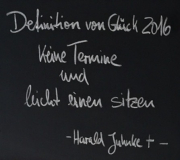 Definition von Glück 2016
Keine Termine
und
leicht einen sitzen
- Harald Juhnke + -